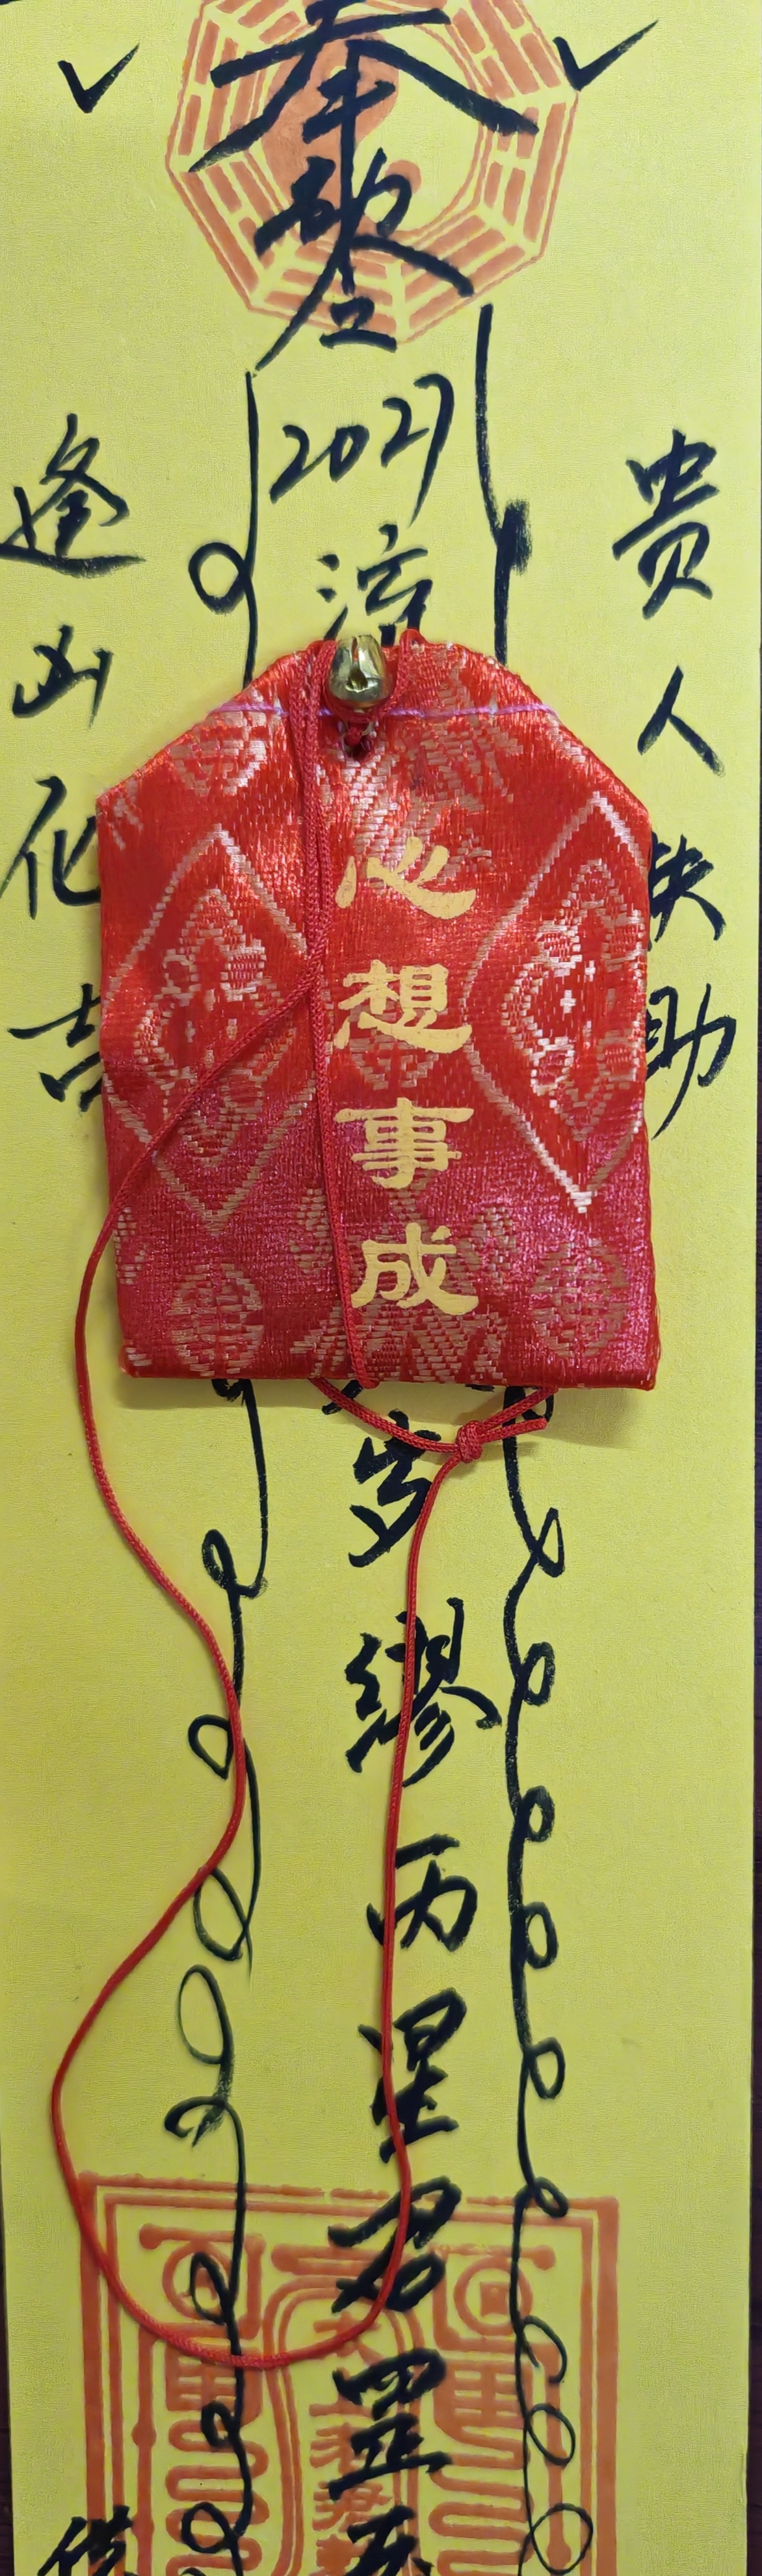 奉勅
2027流
岁繆丙星君罡
贵人扶助
逢凶化吉
心想事成